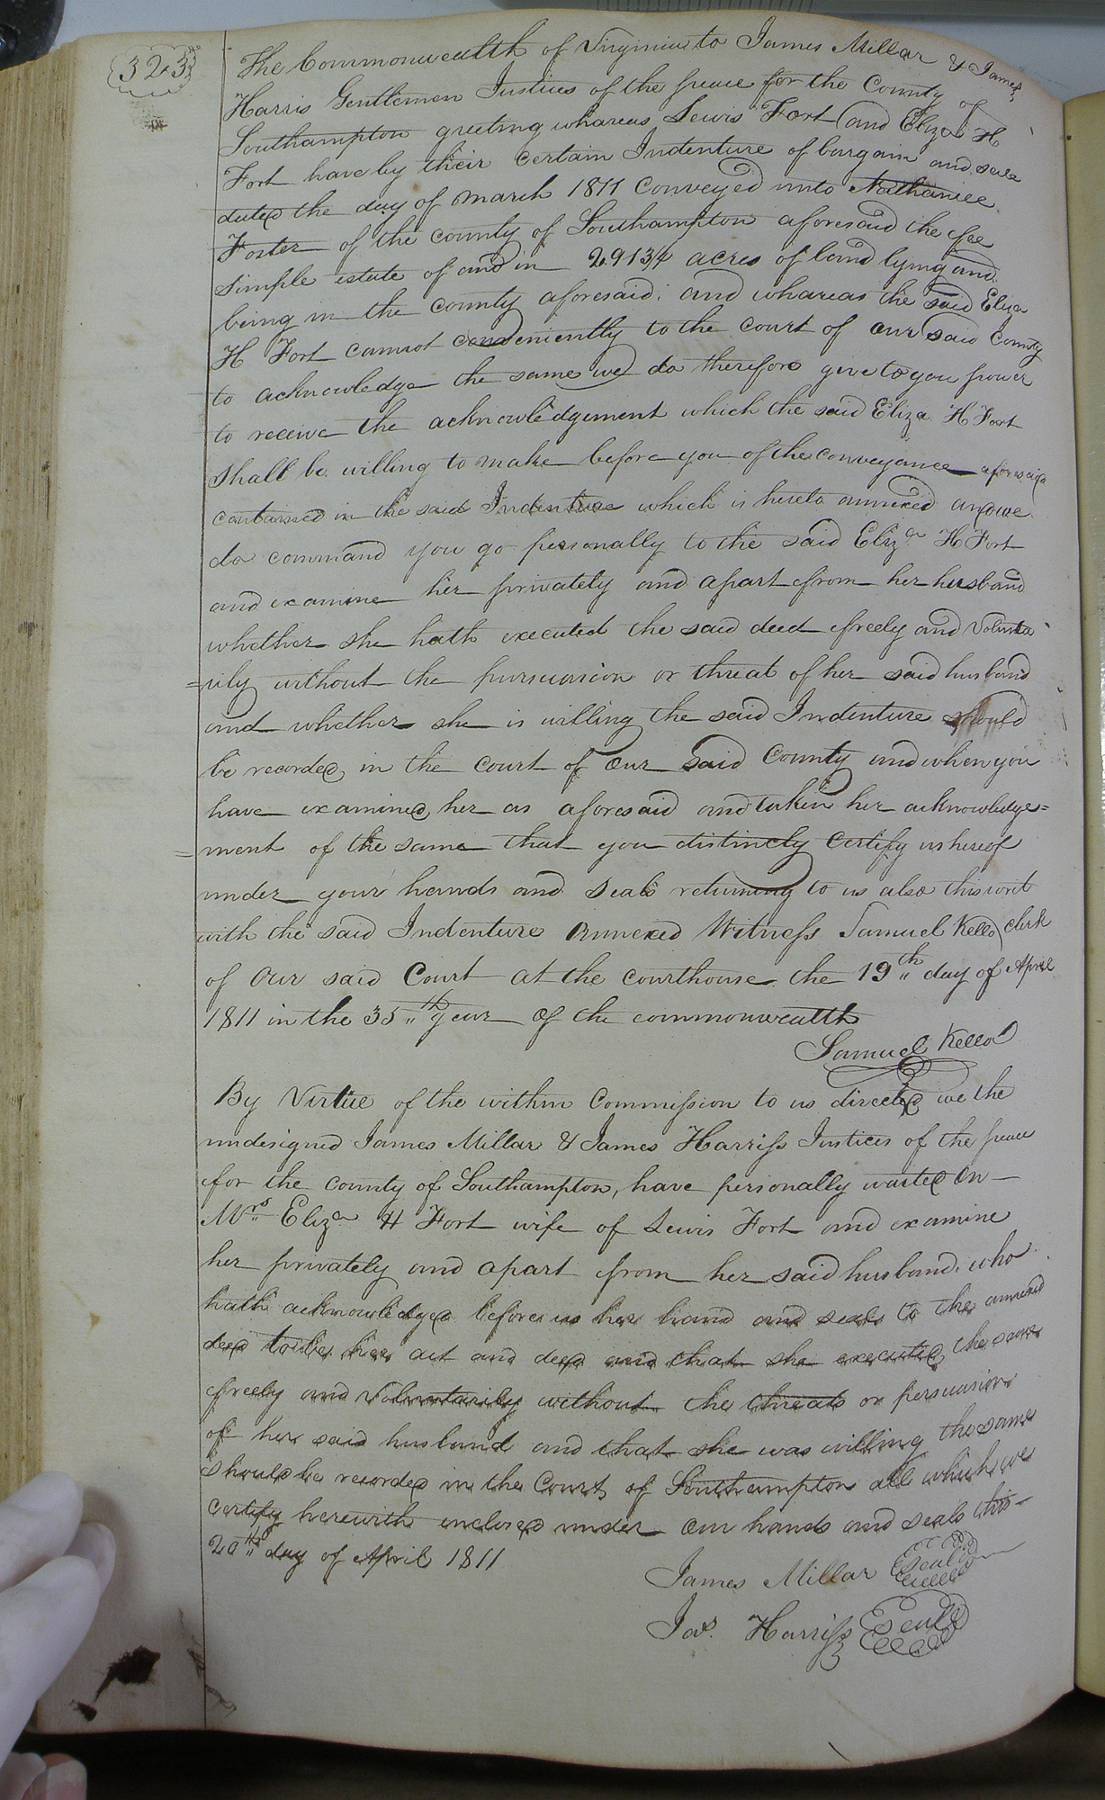 323
The Commonwealth of Virginia to James Millar & James
Harris Gentlemen Justices of the peace for the County of
Southampton greeting whareas Lewis Fort and Eliza H
Fort have by their certain Indenture of bargain and sale
dated the day of march 1811 Conveyed unto Nathaniel
Foster of the county of Southampton aforesaid the fee
simple estate of and in 291 3/4 acres of land lying and
being in the county aforesaid: and whareas the said Eliza
H Fort cannot conveniently to the court of our said County
to acknowledge the same we do therefore give to you power
to receive the acknowledgement which the said Eliza H Fort
shall be willing to make before you of the conveyance aforesaid
contained in the said Indenture which is hereto annexed and we
do command you go personally to the said Eliza H Fort
and examine her privately and apart from her husband
whether she hath executed the said deed freely and volunta
=rily without the pursuasion or threat of her said husband
and whether she is willing the said Indenture should
be recorded in the court of our said County and when you
have examined her as aforesaid and taken her acknowledge=
=ment of the same that you distinctly certify us hereof
under your hands and seals returning to us also this writ
with the said Indenture annexed Witness Samuel Kello clerk
of our said Court at the courthouse the 19th day of April
1811 in the 35th year of the commonwealth
Samuel Kello
By Virtue of the within Commission to us directed we the
undesigned James Millar & James Harriss Justices of the peace
for the county of Southampton, have personally waited on
Mrs Eliza H Fort wife of Lewis Fort and examine
her privately and apart from her said husband, who
hath acknowledged before us her hand and seals to the annexed
deed to be her act and deed and that she executed the same
freely and voluntarily without the threats or persuasions
of her said husband and that she was willing the same
should be recorded in the Court of Southampton all which we
certify herewith inclosed under our hands and seals this
20th day of April 1811
James Millar Seal
Jas. Harriss Seal